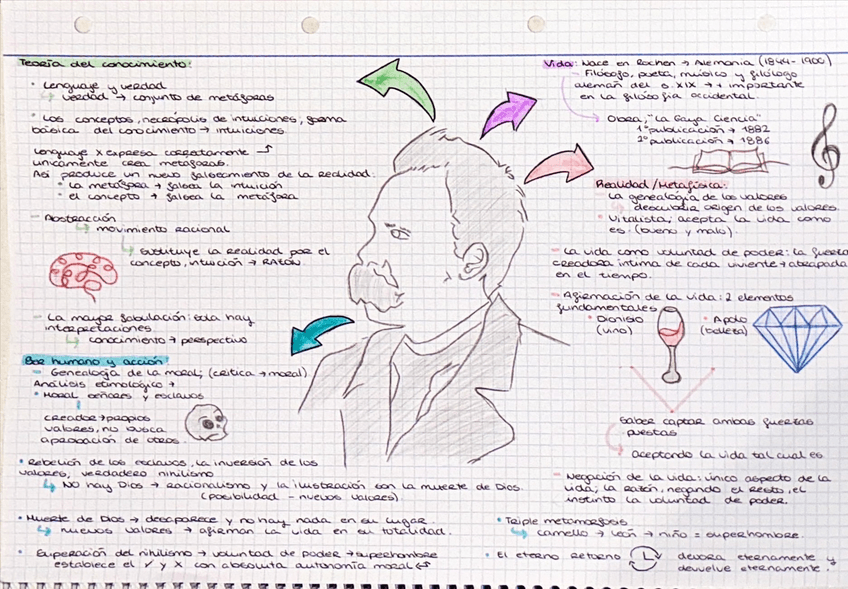 Teoría del conocimiento:
• Lenguaje y verdad
↳ verdad → conjunto de metáforas
• Los conceptos, necrópolis de intuiciones, forma
básica del conocimiento → intuiciones.
Lenguaje X expresa correctamente
unicamente crea metáforas.
Así produce un nuevo falseamiento de la realidad:
• La metáfora → falsea la intuición
• el concepto → falsea la metáfora
- Abstracción
↳ movimiento racional
↳ sustituye la realidad por el
concepto, intuición → RAZÓN.
- La mayor fabulación: sola hay
interpretaciones
↳ conocimiento → perspectivo
Ser humano y acción:
- Genealogía de la moral, (crítica → moral)
Análisis etimológico →
• Moral señores y esclavos
creador → propios
valores, no busca
aprobación de otros.
• Rebelión de los esclavos, la inversión de los
valores, verdadero nihilismo
↳ No hay Dios → racionalismo y la ilustración con la muerte de Dios.
(posibilidad - nuevos valores).
• Muerte de Dios → desaparece y no hay nada en su lugar.
↳ nuevos valores → afirman la vida en su totalidad.
• Superación del nihilismo → voluntad de poder → superhombre
establece el ✓ y X con absoluta autonomía moral
Vida: Nace en Rochen → Alemania (1844-1900)
- Filósofo, poeta, músico y filólogo
alemán del s. XIX → + importante
en la filosofía occidental.
Obra, "La Gaya Ciencia"
1ª publicación → 1882
2ª publicación → 1886
Realidad/Metafísica:
- La genealogía de los valores
descubría origen de los valores.
• Vitalista, acepta la vida como
es: (bueno y malo).
- La vida como voluntad de poder: la fuerza
creadora íntima de cada viviente → atrapada
en el tiempo.
- Afirmación de la vida: 2 elementos
fundamentales
• Dioniso • Apolo
(vino) (belleza)
Saber captar ambas fuerzas
puestas
Aceptando la vida tal cual es
- Negación de la vida: único aspecto de la
vida, la razón, negando el resto, el
instinto la voluntad de poder.
• Triple metamorfosis
↳ camello → león → niño = superhombre.
• El eterno retorno devora eternamente y
devuelve eternamente.